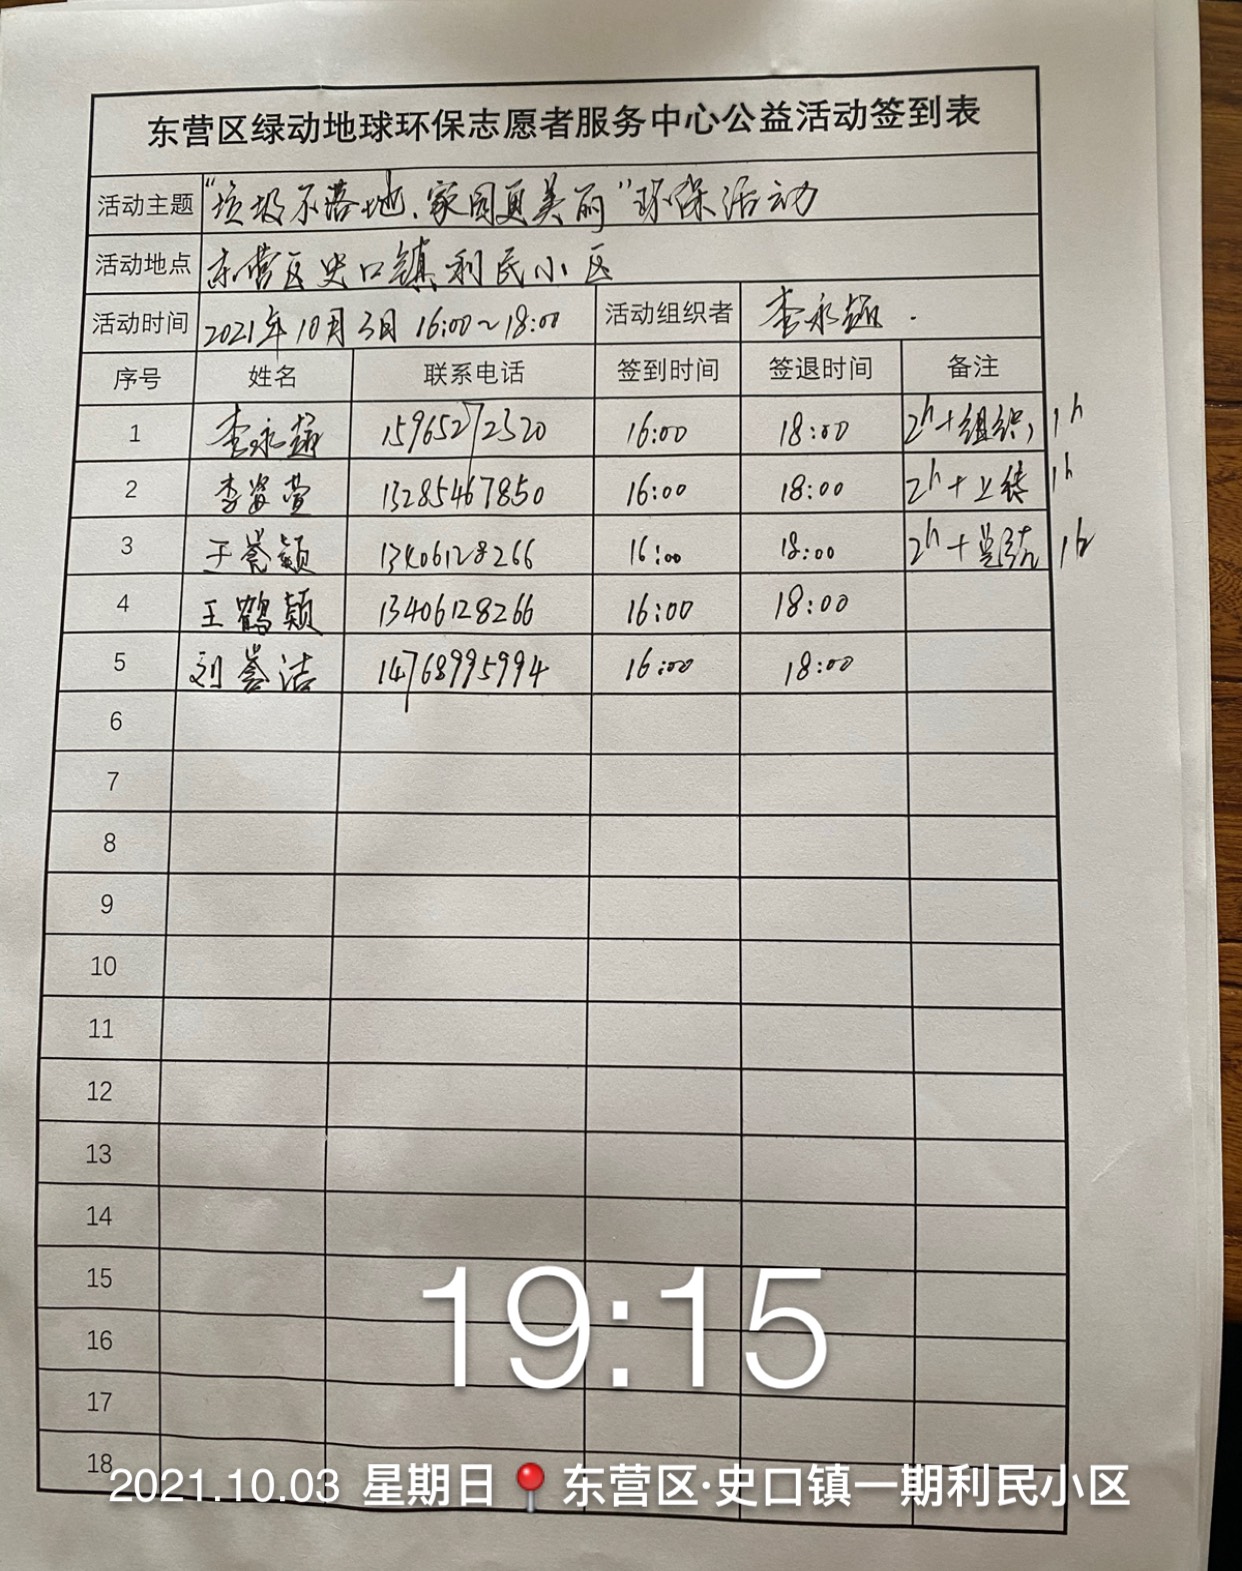 东营区绿动地球环保志愿者服务中心公益活动签到表
活动主题 “垃圾不落地、家园更美丽”环保活动
活动地点 东营区史口镇利民小区
活动时间 2021年10月3日 16:00~18:00 活动组织者 李永超.
序号 姓名 联系电话 签到时间 签退时间 备注
1 李永超 15965272520 16:00 18:00 2h+组织,1h
2 李姿萱 13285467850 16:00 18:00 2h+上传 1h
3 于 颖 13406128266 16:00 18:00 2h+总结 1h
4 王鹤颖 13406128266 16:00 18:00
5 刘誉洁 14768995994 16:00 18:00
6
7
8
9
10
11
12
13
14
15
16
17
18
19:15
2021.10.03 星期日 东营区·史口镇一期利民小区